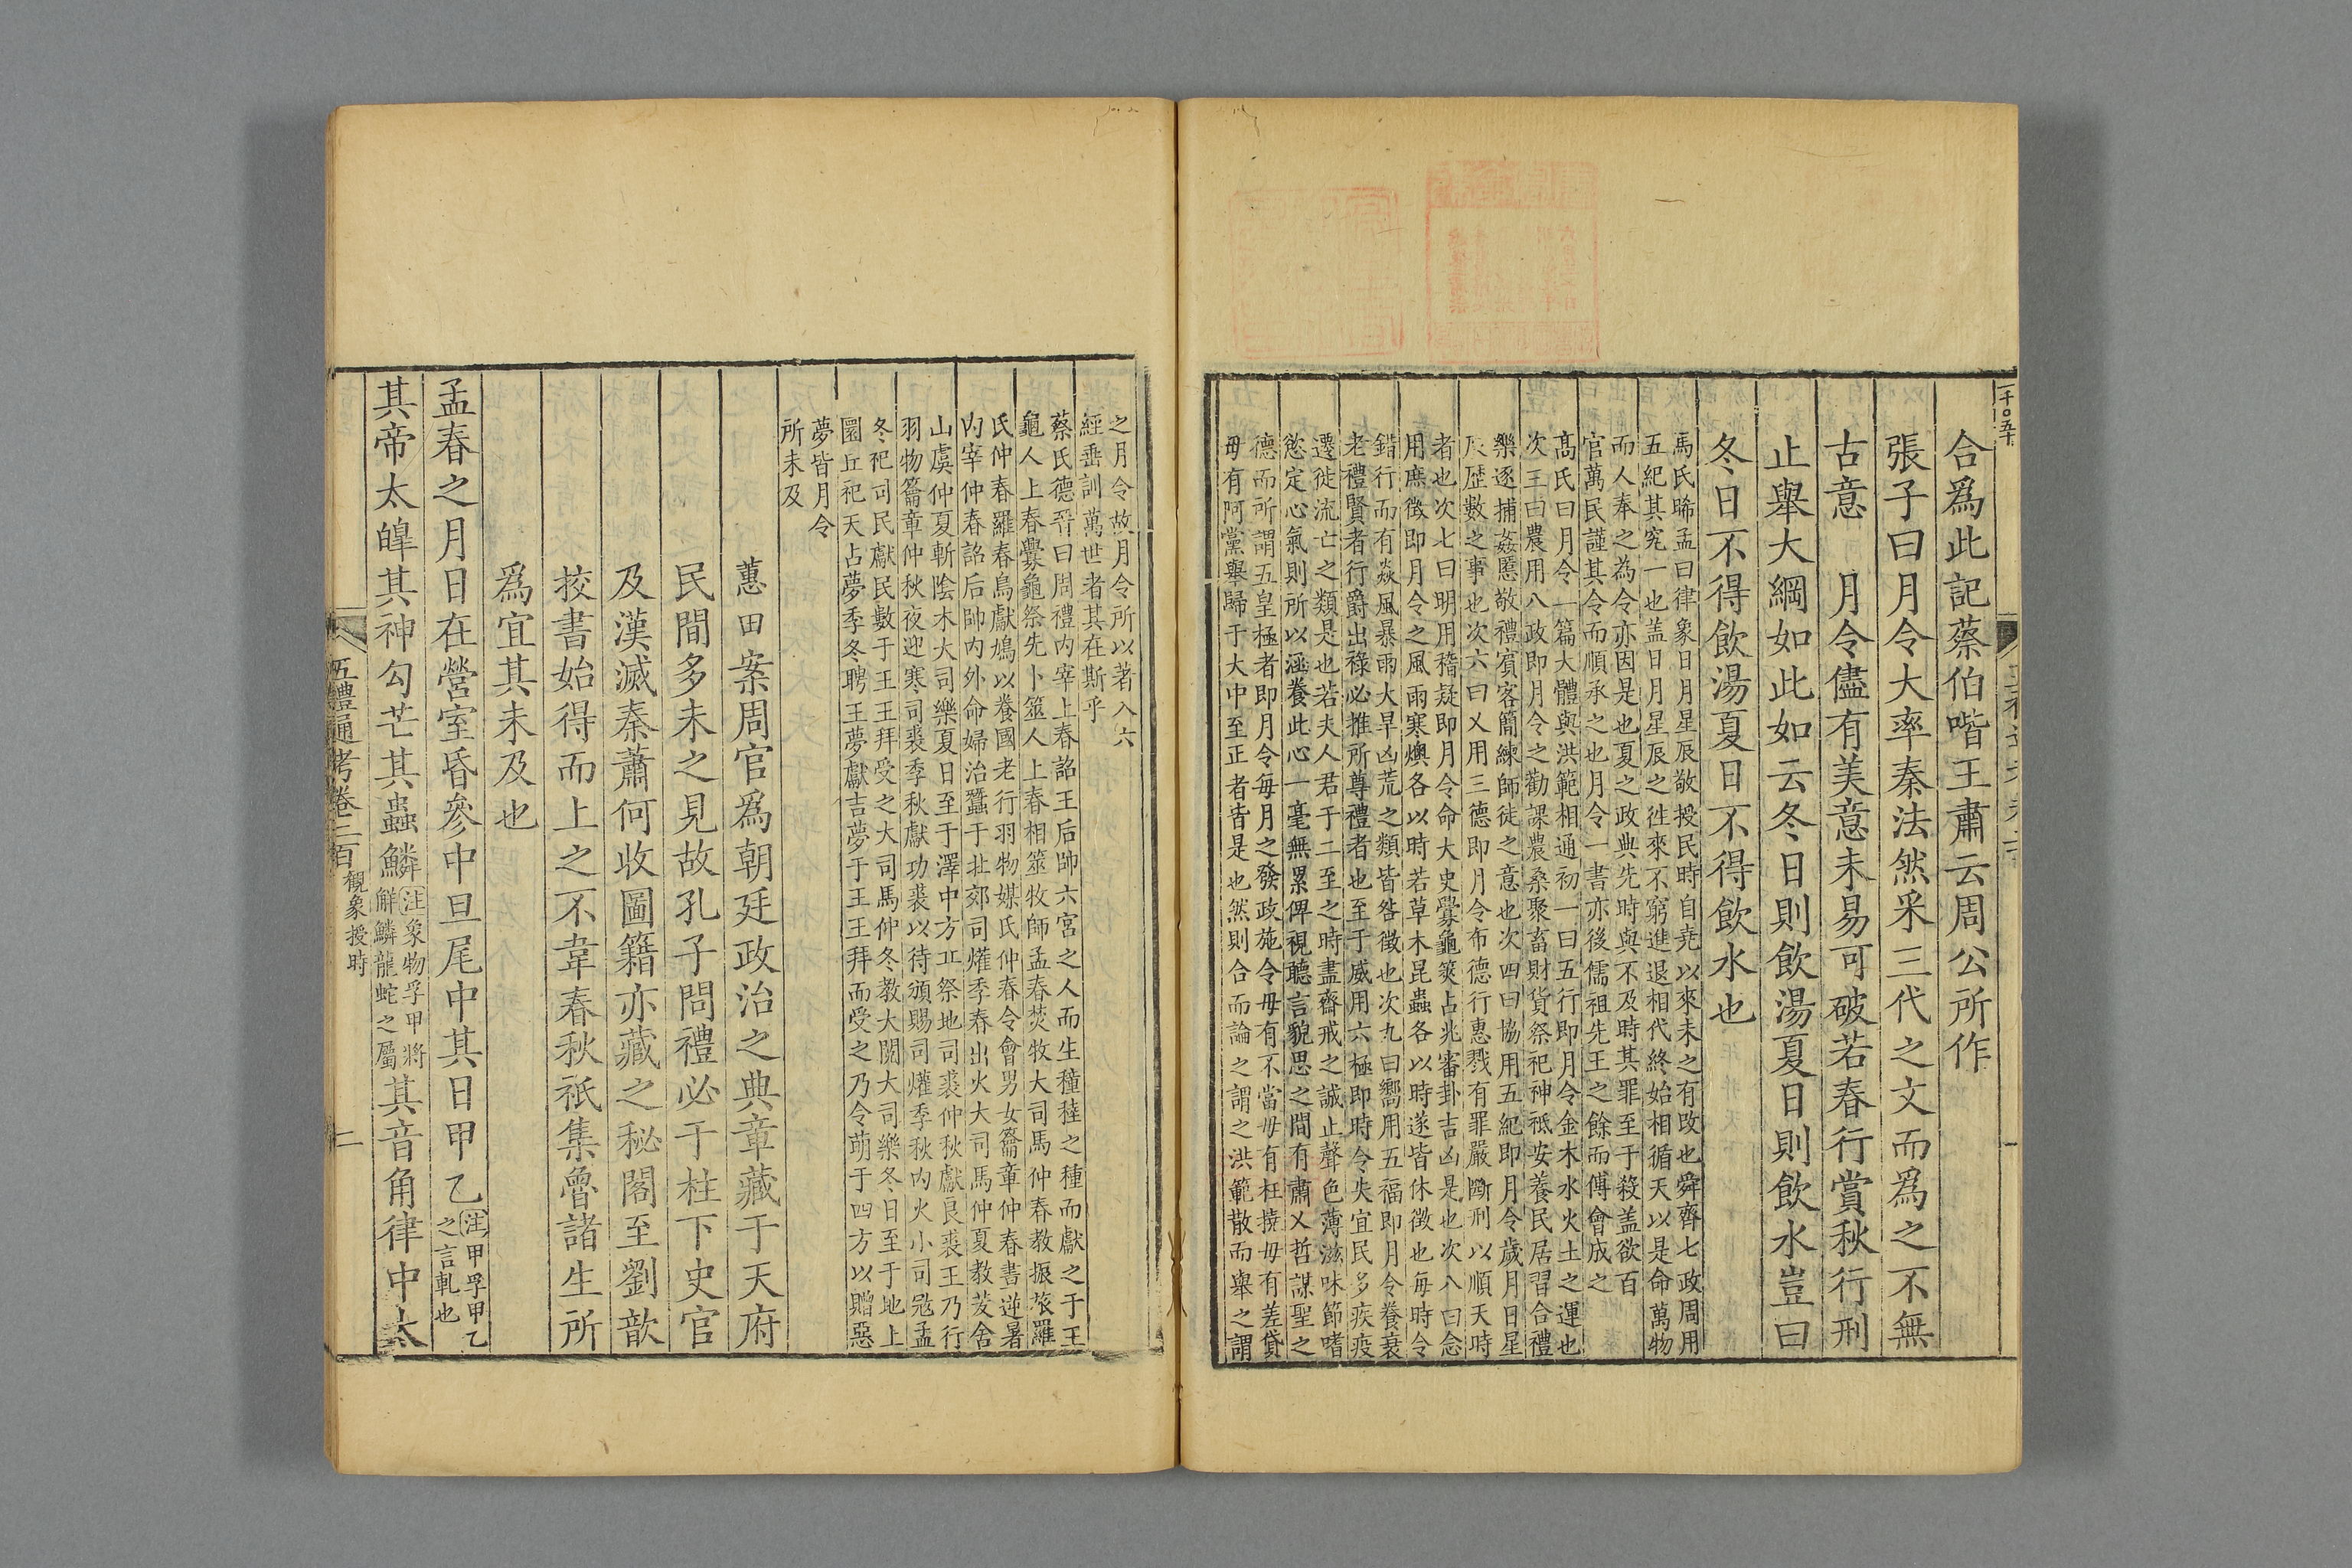 合爲此記蔡伯喈王肅云周公所作
張子曰月令大率秦法然采三代之文而爲之不無
古意　月令儘有美意未易可破若春行賞秋行刑
止舉大綱如此如云冬日則飲湯夏日則飲水豈曰
冬日不得飲湯夏日不得飲水也
馬氏晞孟曰律象日月星辰敬授民時自堯以來未之有改也舜齊七政周用
五紀其究一也盖日月星辰之徃來不窮進退相代終始相循天以是命萬物
而人奉之為令亦因是也夏之政典先時與不及時其罪至于殺盖欲百
官萬民謹其令而順承之也月令一書亦後儒祖先王之餘而傅會成之
髙氏曰月令一篇大體與洪範相通初一曰五行即月令金木水火土之運也
次王曰農用八政即月令之勸課農桑聚畜財貨祭祀神祗安養民居習合禮
樂逐捕姦慝敬禮賓客簡練師徒之意也次四曰協用五紀即月令歲月日星
辰歴數之事也次六曰乂用三德即月令布德行惠戮有罪嚴斷刑以順天時
者也次七曰明用稽疑即月令命大史釁龜筴占兆審卦吉凶是也次八曰念
用庶徴即月令之風雨寒燠各以時若草木昆蟲各以時遂皆休徴也毎時令
錯行而有焱風暴雨大旱凶荒之類皆咎徴也次九曰嚮用五福即月令養衰
老禮賢者行爵出祿必推所尊禮者也至于威用六極即時令失宜民多疾疫
遷徙流亡之類是也若夫人君于二至之時盡齋戒之誠止聲色薄滋味節嗜
慾定心氣則所以涵養此心一毫無累俾視聽言貌思之間有肅乂哲謀聖之
德而所謂五皇極者即月令每月之發政施令毋有不當毋有枉撓毋有差貸
毋有阿黨舉歸于大中至正者皆是也然則合而論之謂之洪範散而舉之謂
之月令故月令所以著入六
經垂訓萬世者其在斯乎
蔡氏德晉曰周禮内宰上春詔王后帥六宮之人而生穜稑之種而獻之于王
龜人上春釁龜祭先卜簭人上春相簭牧師孟春焚牧大司馬仲春教振旅羅
氏仲春羅春鳥獻鳩以養國老行羽物媒氏仲春令會男女籥章仲春晝逆暑
内宰仲春詔后帥内外命婦治蠶于北郊司爟季春出火大司馬仲夏教茇舍
山虞仲夏斬陰木大司樂夏日至于澤中方丘祭地司裘仲秋獻良裘王乃行
羽物籥章仲秋夜迎寒司裘季秋獻功裘以待頒賜司爟季秋内火小司宼孟
冬祀司民獻民數于王王拜受之大司馬仲冬教大閱大司樂冬日至于地上
圜丘祀天占夢季冬聘王夢獻吉夢于王王拜而受之乃令萌于四方以贈惡
夢皆月令
所未及
蕙田案周官爲朝廷政治之典章藏于天府
民間多未之見故孔子問禮必于柱下史官
及漢滅秦蕭何收圖籍亦藏之秘閣至劉歆
挍書始得而上之不韋春秋祇集魯諸生所
爲宜其未及也
孟春之月日在營室昏參中旦尾中其日甲乙注甲孚甲乙之言軋也
其帝太皥其神勾芒其蟲鱗注象物孚甲將解鱗龍蛇之屬其音角律中太
五禮通考卷二百　觀象授時　二